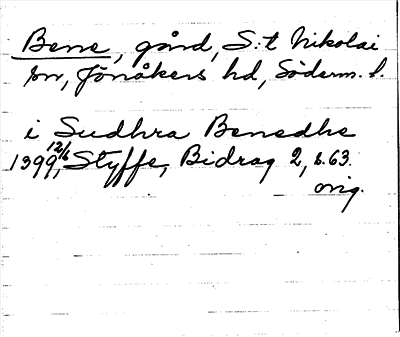 Bene, gård, S:t Nikolai
sn, Jönåkers hd, Söderm. l.
i Sudhra Benedhe
1399 12/6, Styffe, Bidrag 2, s. 63.
orig.